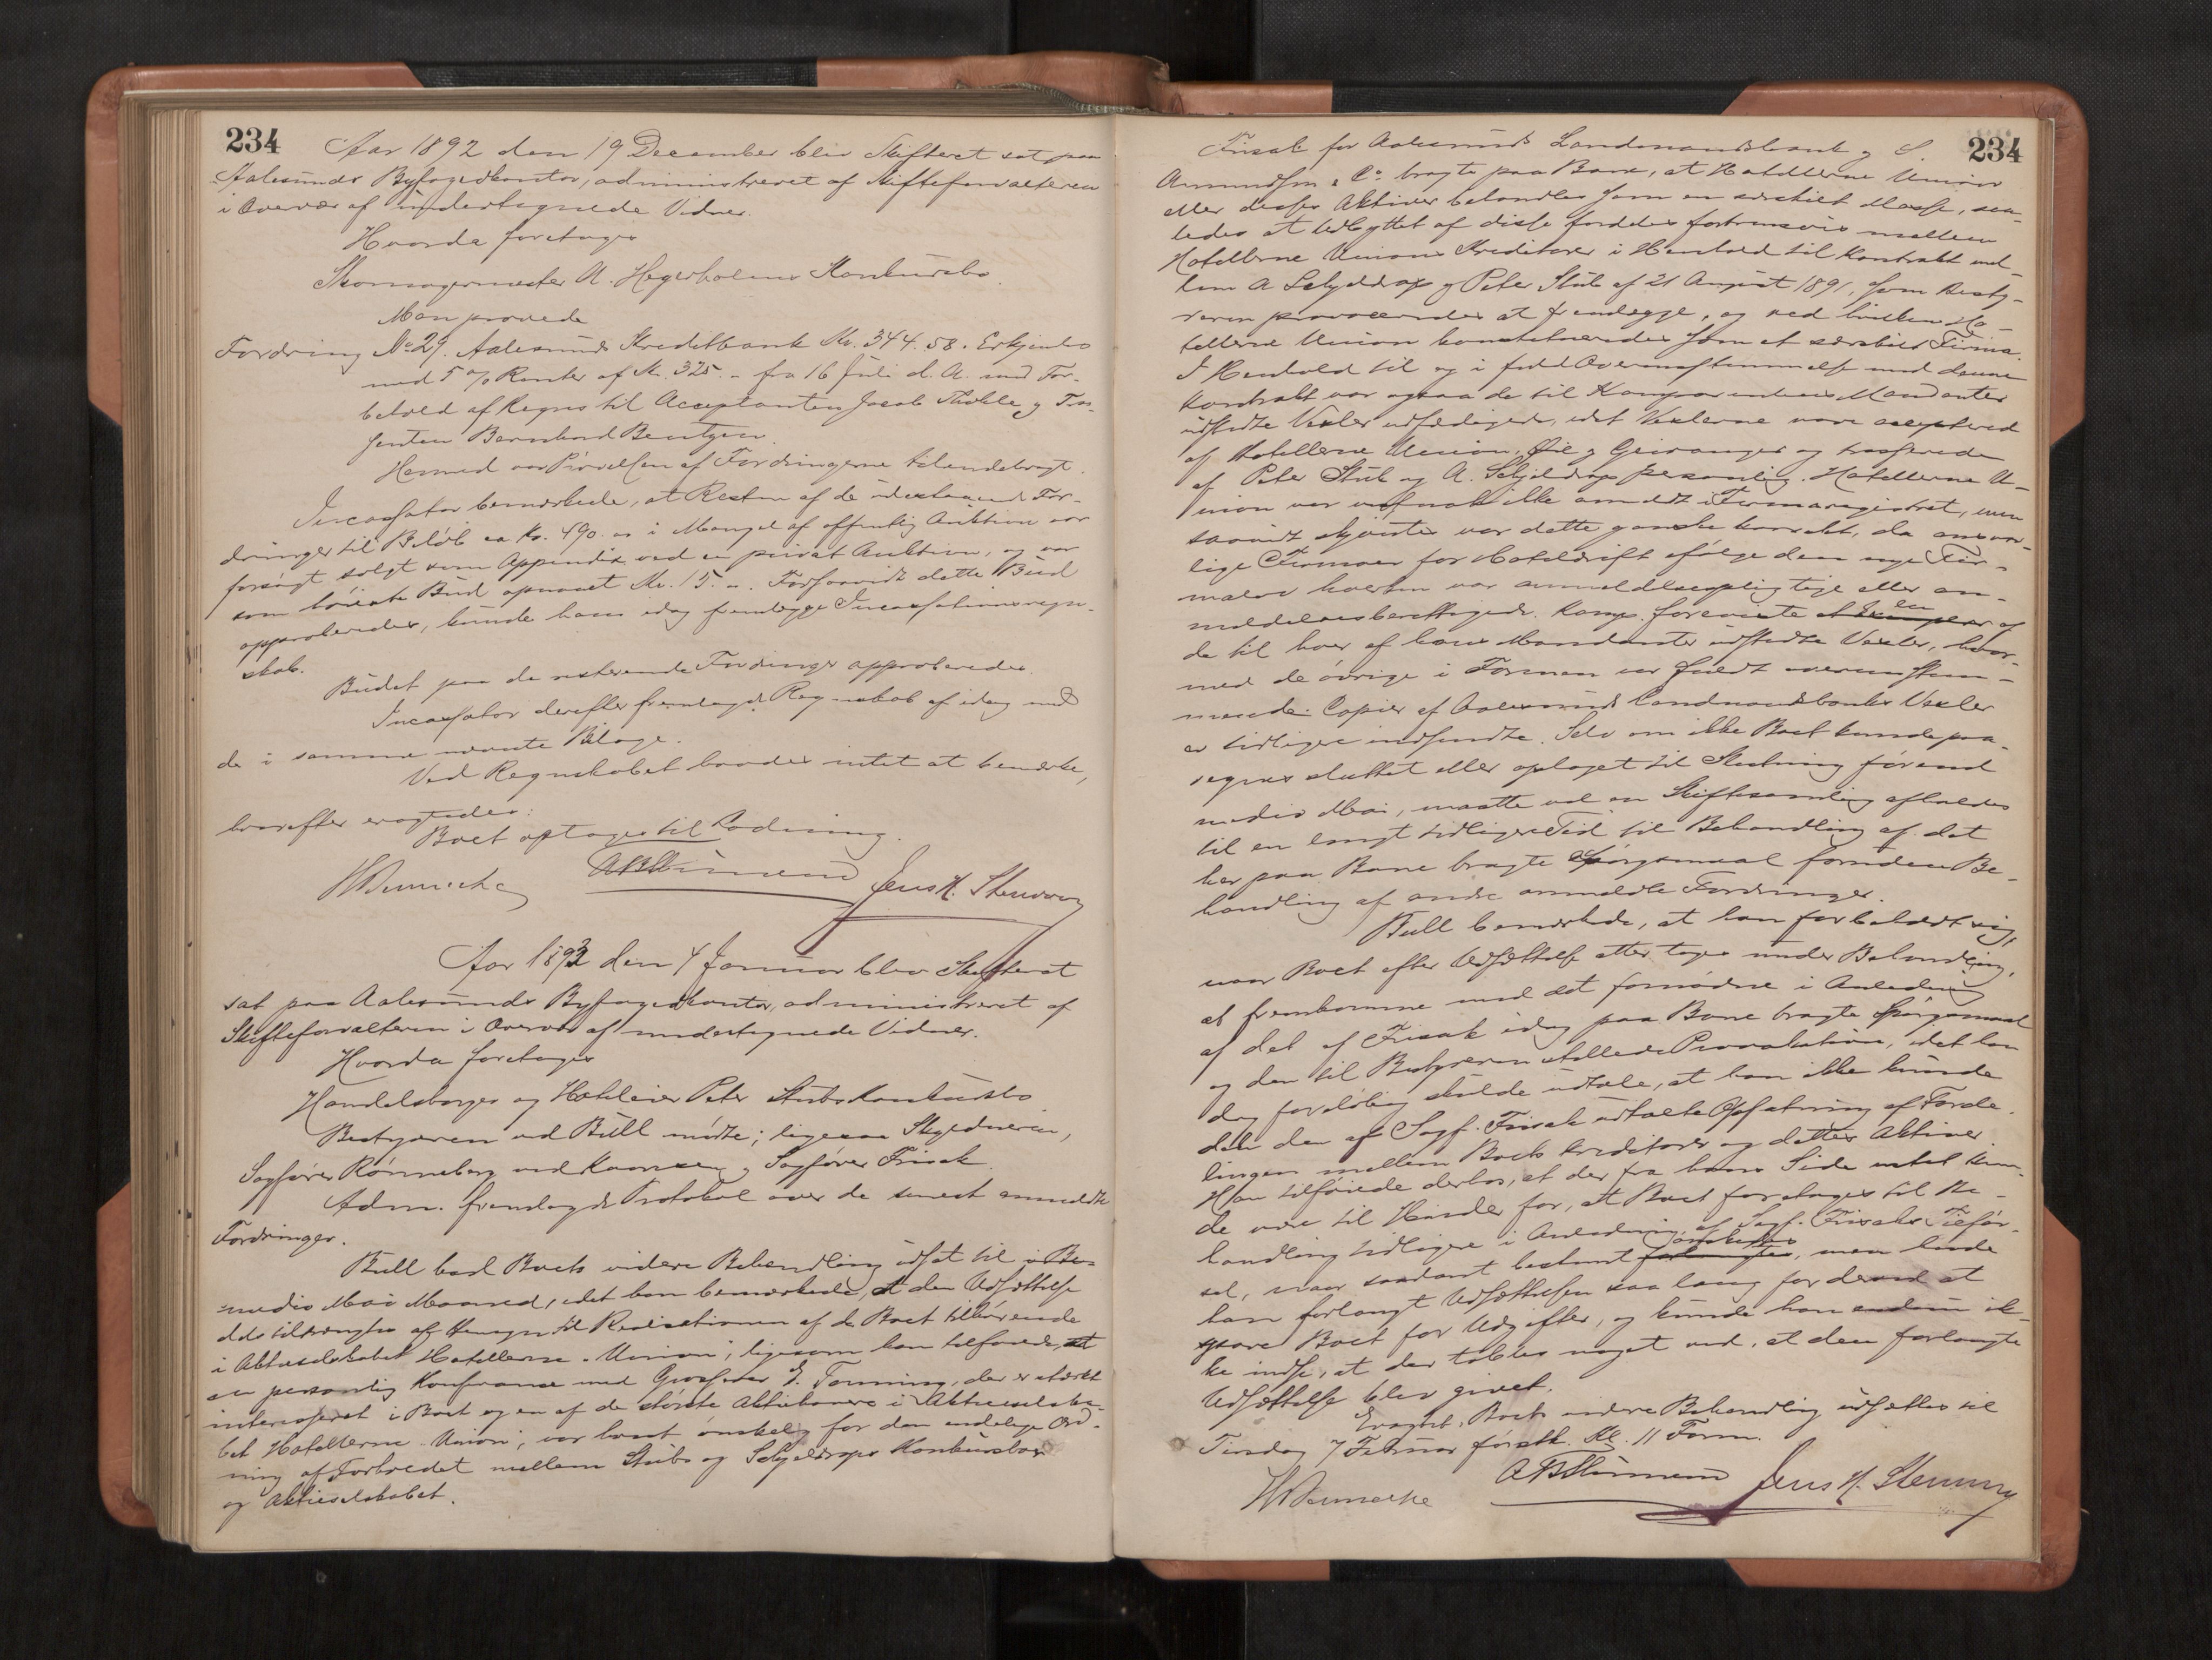 234
Aar 1892 den 19 December blev Skifteret sat paa
Aalesunds Byfogedkontor, administreret af Skifteforvalteren
i Overvær af undertegnede Vidner.
Hvorda foretoges
Skomagermester A. Hegerholms Konkursbo.
Man prøvede
Fordring No 29. Aalesunds Kreditbank Kr. 344.58. Erkjendes
med 5 % Renter af Kr. 325.- fra 16 Juli d. A. med For-
behold af Regres til Acceptanten Jacob og Tras-
senten Bernhard Bentzen.
Hermed var Prøvelsen af Fordringerne tilendebragt.
Incassator bemærkede, at Resten af de udestaaende For-
dringer til Beløb ca Kr. 490.00 i Mangel af offentlig Auktion var
forsøgt solgt som Appendix ved en privat Auktion, og var
som høieste Bud opnaaet Kr. 15.00. Forsaavidt dette Bud
approberedes, kunde han idag fremlægge Incassationsregn-
skab.
Budet paa de resterende Fordringer approberedes.
Incassator derefter fremlagde Regnskab af idag med
de i samme nævnte Bilage.
Ved Regnskabet havdes intet at bemærke,
hvorefter eragtedes:
Boet optages til Lodning.
Jens K. Stenvaag
Aar 1893 den 4 Januar blev Skifteret
sat paa Aalesunds Byfogedkontor, administreret af
Skifteforvalteren i Overvær af undertegnede Vidner.
Hvorda foretoges
Handelsborger og Hoteleier Peter Stubs Konkursbo
Bestyreren ved Bull mødte; ligesaa Skyldneren,
Sagfører Rønneberg ved og Sagfører Frisak.
Adm. fremlagde Protokol over de senest anmeldte
Fordringer.
Bull bad Boets videre Behandling udsat til
medio Mai Maaned, idet han bemærkede, at den Udsættelse
dels tiltrængtes af Hensyn til Realisationen af de Boet tilhørende
i Aktieselskabet Hotellerne Union; ligesom han tilføiede, at
en personlig Konferance med Grosserer E. Tønning, der er stærkt
interesseret i Boet og en af de største Aktionærer i Aktieselska-
bet Hotellerne Union, var høist ønskelig for den endelige Ord-
ning af Forholdet mellem Stubs og Schjeldrops Konkursboer
og Aktieselskabet.
234
Frisak for Aalesunds Landmandsbank og S.
Amundsen & Co bragte paa Bane, at Hotellerne Union
eller disses Aktiver behandles som en særskilt Masse, saa-
ledes at Udbyttet af disse fordeles fortrinsvis mellem
Hotellerne Unions Kreditorer i Henhold til Kontrakt mel-
lem A Schjeldrop og Peter Stub af 21 August 1891, som Besty-
reren provoceredes at fremlægge, og ved hvilken Ho-
tellerne Union konstitueredes som et særskilt Firma.
I Henhold til og i fuld Overensstemmelse med denne
Kontrakt var ogsaa de til Komparentens Mandanter
udstedte Vexler udfærdigede, idet Vexlerne vare accepterede
af Hotellerne Union, Øie & Geiranger og trasserede
af Peter Stub og A. Schjeldrop personlig. Hotellerne U-
nion var vistnok ikke anmeldt i Firmaregistret, men
saavidt skjøntes var dette ganske korrekt, da ansvar-
lige Firmaer for Hoteldrift ifølge den nye Fir-
malov hverken var anmeldelsespligtige eller an-
meldelsesberettigede. Komp. foreviste en af
de til hver af hans Mandanter udstedte Vexler, hvor-
med de øvrige i Formen var fuldt overensstem-
mende. Copier af Aalesunds Landmandsbanks Vexler
er tidligere indsendte. Selv om ikke Boet kunde paa-
regnes sluttet eller optaget til Slutning førend
medio Mai, maatte vel en Skiftesamling afholdes
til en langt tidligere Tid til Behandling af det
her paa Bane bragte Spørgsmaal foruden Be-
handling af andre anmeldte Fordringer.
Bull bemærkede, at han forbeholdt sig,
naar Boet efter Udsættelse atter toges under Behandling,
at fremkomme med det fornødne i Anledning
af det af Frisak idag paa Bane bragte Spørgsmaal
og den til Bestyreren stillede Provokation, idet han
dog foreløbig skulde udtale, at han ikke kunde
dele den af Sagf. Frisak udtalte Opfatning af Forde-
lingen mellem Boets Kreditorer og dettes Aktiver.
Han tilføiede derhos, at der fra hans Side intet kun-
de være til Hinder for, at Boet foretages til Be-
handling tidligere i Anledning af Sagf. Frisaks Tilfør-
sel, naar saadant bestemt ønskedes, men havde
han forlangt Udsættelsen saa lang for derved at
spare Boet for Udgifter, og kunde han ik-
ke indse, at der tabtes noget ved, at den forlangte
Udsættelse blev givet.
Eragtet: Boets videre Behandling udsættes til
Tirsdag 7 Februar førstk. Kl. 11 Form.
Jens K. Stenvaag